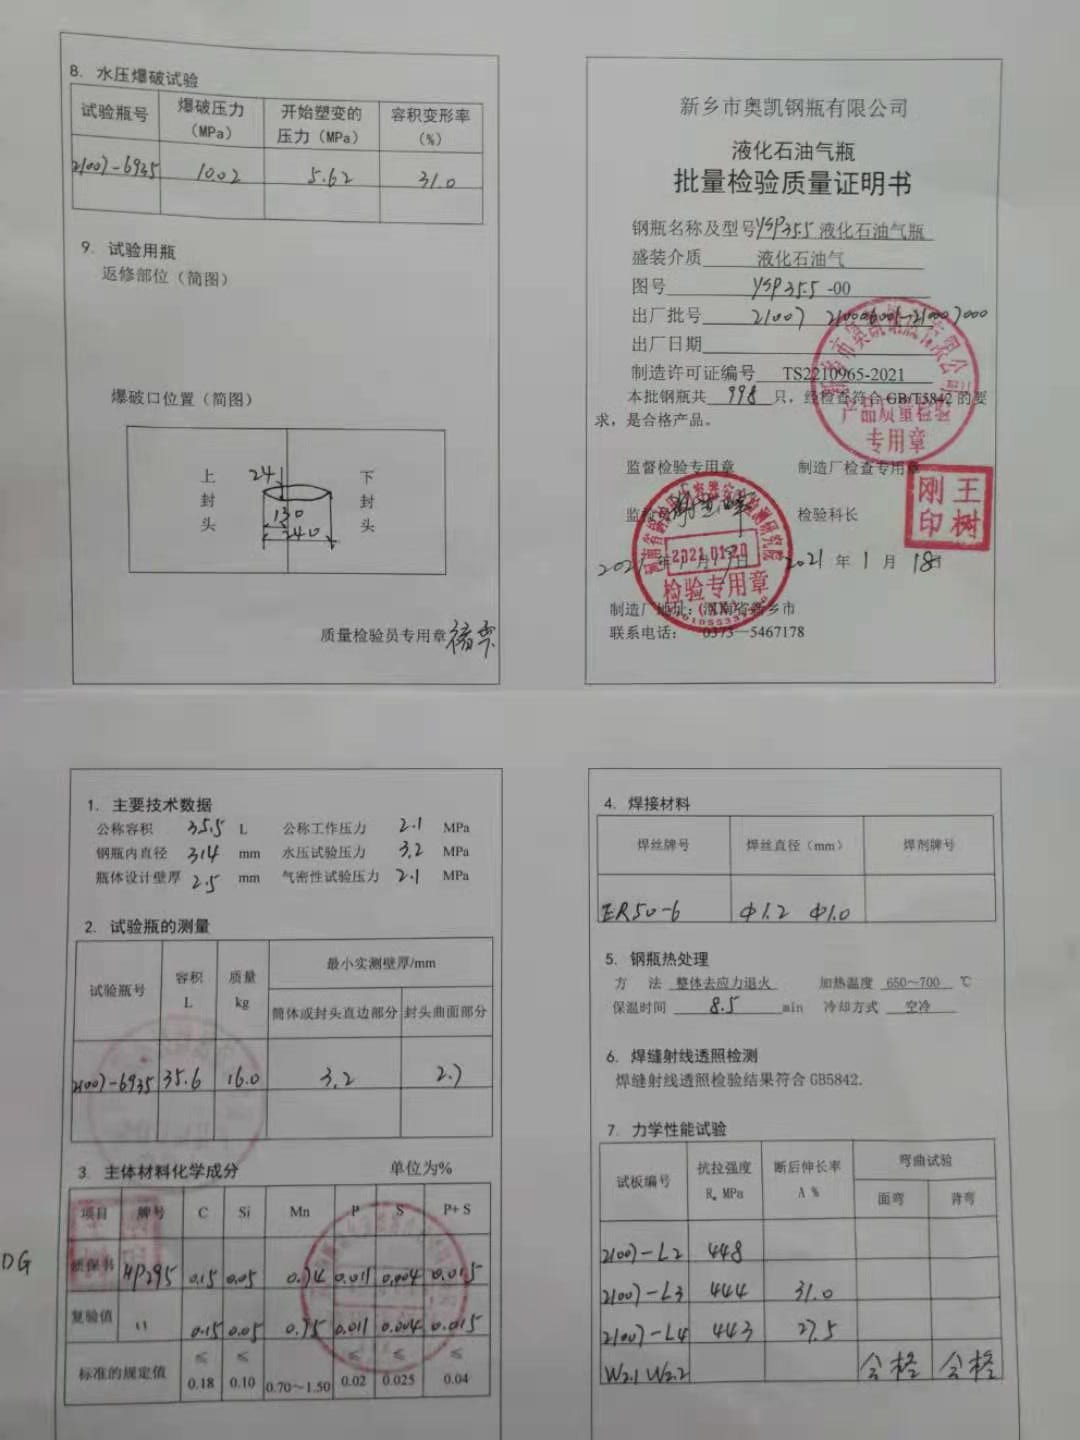 8. 水压爆破试验
试验瓶号 爆破压力（MPa） 开始塑变的压力（MPa） 容积变形率（%）
21007-6935 10.02 5.62 31.0
9. 试验用瓶
返修部位（简图）
爆破口位置（简图）
上封头 下封头
241
130
240
质量检验员专用章
新乡市奥凯钢瓶有限公司
液化石油气瓶
批量检验质量证明书
钢瓶名称及型号 YSP35.5 液化石油气瓶
盛装介质 液化石油气
图号 YSP35.5 -00
出厂批号 21007
出厂日期
制造许可证编号 TS2210965-2021
本批钢瓶共 998 只，经检查符合 GB/T5842 的要
求，是合格产品。
产品质量检验
专用章
监督检验专用章 制造厂检查专用章
检验科长
王树刚印
2021.01.20
检验专用章
2021 年 1 月 19日 2021 年 1 月 18日
制造厂地址：河南省新乡市
联系电话： 0373—5467178
1. 主要技术数据
公称容积 35.5 L 公称工作压力 2.1 MPa
钢瓶内直径 314 mm 水压试验压力 3.2 MPa
瓶体设计壁厚 2.5 mm 气密性试验压力 2.1 MPa
2. 试验瓶的测量
试验瓶号 容积 L 质量 kg 最小实测壁厚/mm
筒体或封头直边部分 封头曲面部分
21007-6935 35.6 16.0 3.2 2.7
3. 主体材料化学成分 单位为%
项目 牌号 C Si Mn P S P+S
质保书 HP295 0.15 0.05 0.74 0.011 0.004 0.015
复验值 〃 0.15 0.05 0.75 0.011 0.004 0.015
标准的规定值 ≤0.18 ≤0.10 0.70～1.50 ≤0.02 ≤0.025 ≤0.04
DG
4. 焊接材料
焊丝牌号 焊丝直径（mm） 焊剂牌号
ER50-6 Φ1.2 Φ1.0
5. 钢瓶热处理
方 法 整体去应力退火 加热温度 650～700 ℃
保温时间 8.5 min 冷却方式 空冷
6. 焊缝射线透照检测
焊缝射线透照检验结果符合 GB5842.
7. 力学性能试验
试板编号 抗拉强度 Rm MPa 断后伸长率 A % 弯曲试验
面弯 背弯
21007-L2 448
21007-L3 444 31.0
21007-L4 443 27.5
W2.1 W2.2 合格 合格